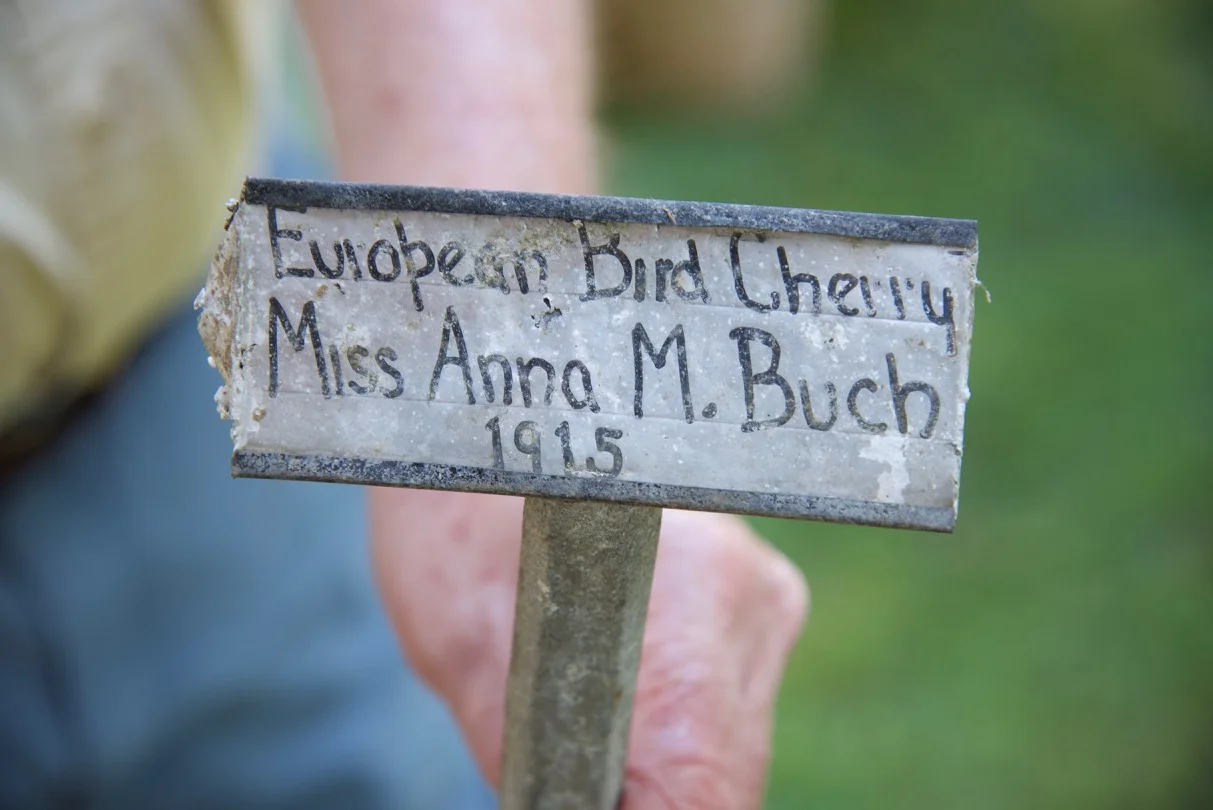 European Bird Cherry
Miss Anna M. Buch
1915